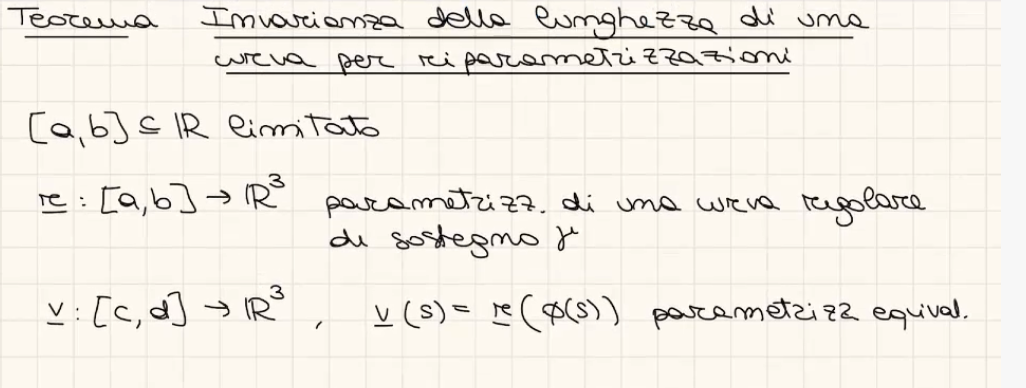 Teorema Invarianza della lunghezza di una
curva per riparametrizzazioni
[a,b] ⊆ ℝ limitato
r : [a,b] → ℝ³ parametrizz. di una curva regolare
di sostegno γ
v : [c,d] → ℝ³ , v(s) = r(ϕ(s)) parametrizz equival.